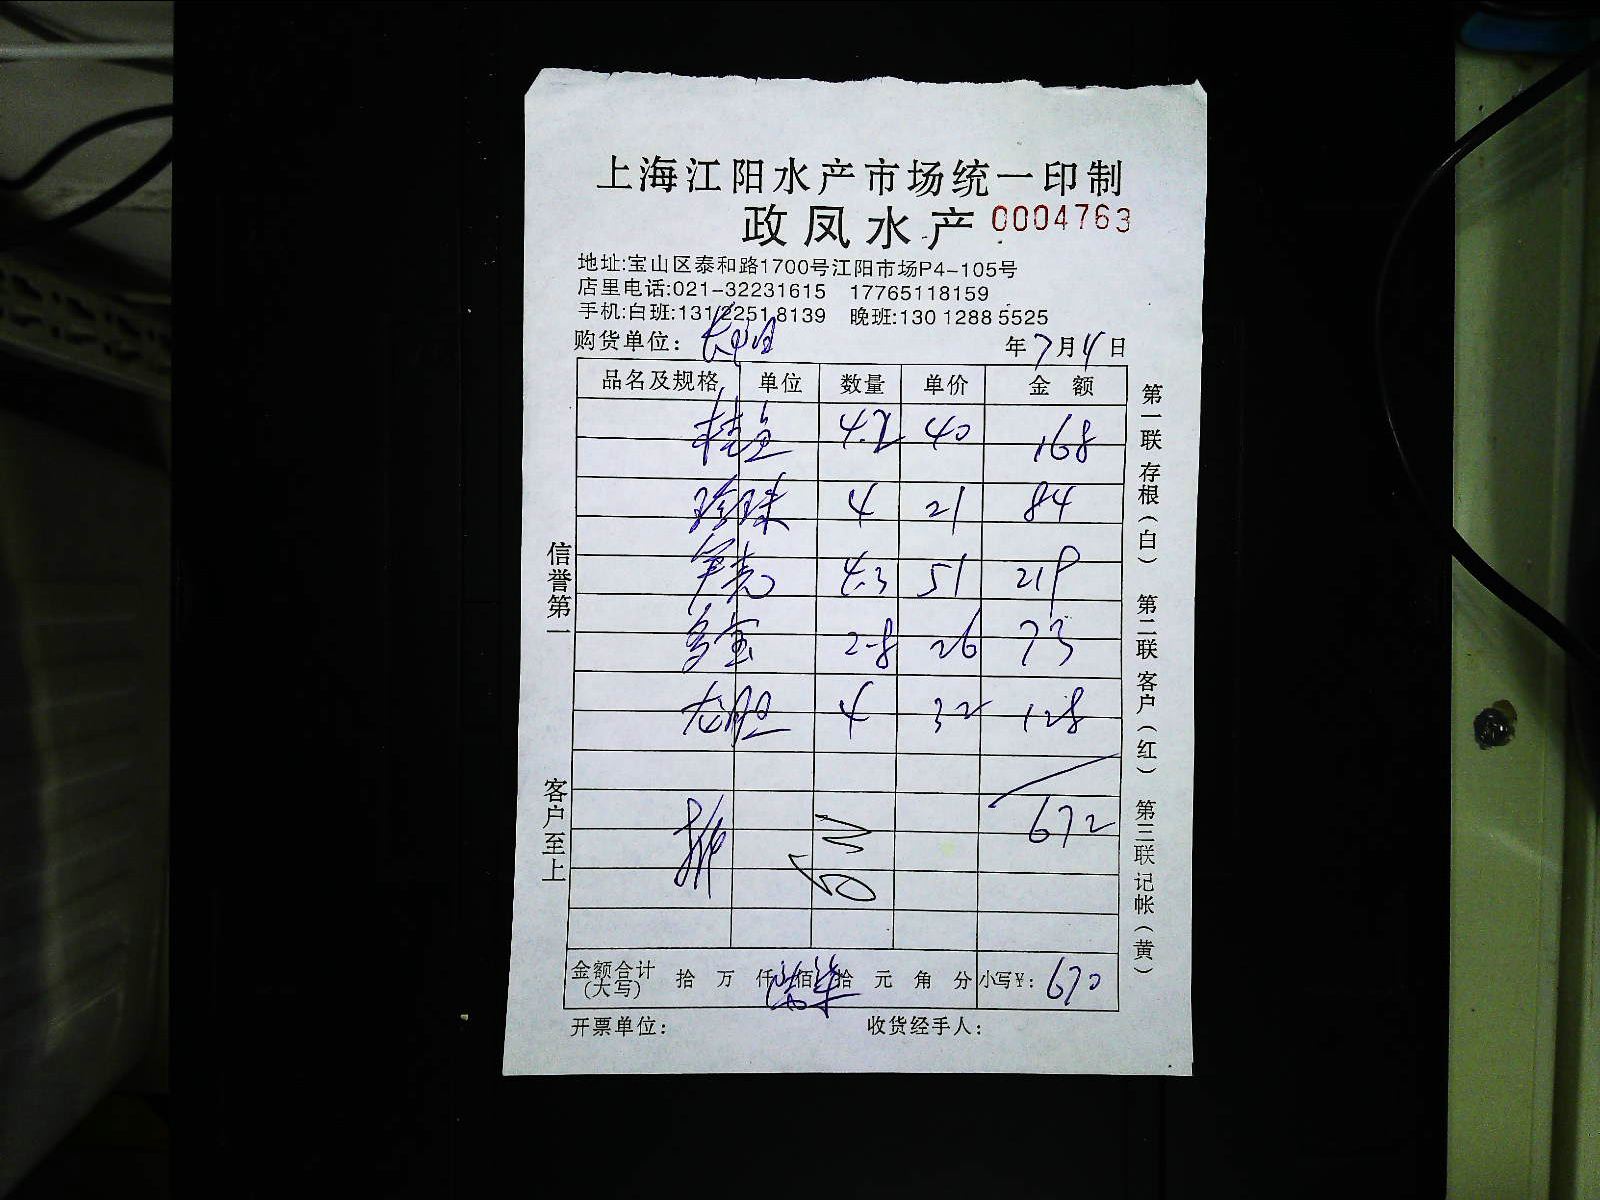 上海江阳水产市场统一印制
政凤水产 0004763
地址:宝山区泰和路1700号江阳市场P4-105号
店里电话:021-32231615 17765118159
手机:白班:131 2251 8139 晚班:130 1288 5525
购货单位: 年7月4日
品名及规格 单位 数量 单价 金额
桂鱼 4.2 40 168
珍珠 4 21 84
笋壳 4.3 51 219
多宝 2.8 26 73
龙胆 4 32 128
672
金额合计(大写) 拾 万 仟 佰 拾 元 角 分 小写¥: 670
开票单位: 收货经手人:
信誉第一
客户至上
第一联存根(白) 第二联客户(红) 第三联记帐(黄)